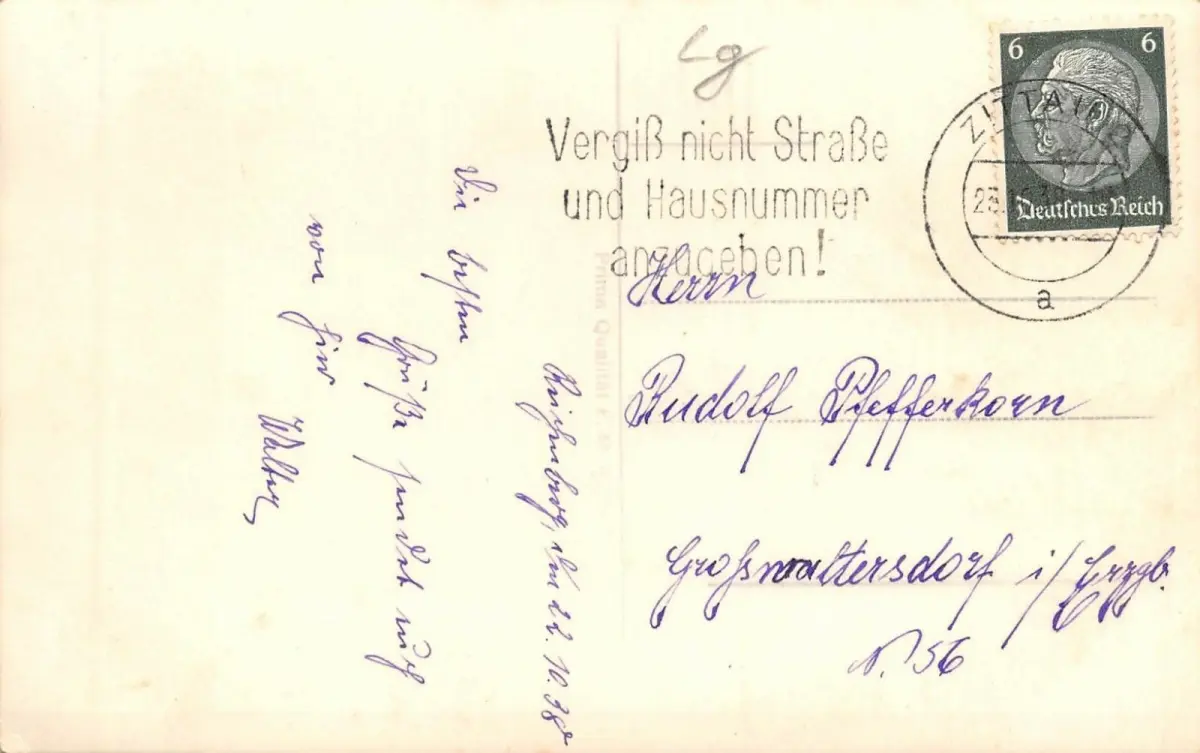 Lg
6 6
Deutsches Reich
ZITTAU
23.
a
Vergiß nicht Straße
und Hausnummer
anzugeben!
Prima Qualität
Herrn
Rudolf Pfefferkorn
Großwaltersdorf i/Erzgb.
N. 56
Reichenberg, den 22.10.38
Die besten
Grüße sendet euch
von hier
Walter